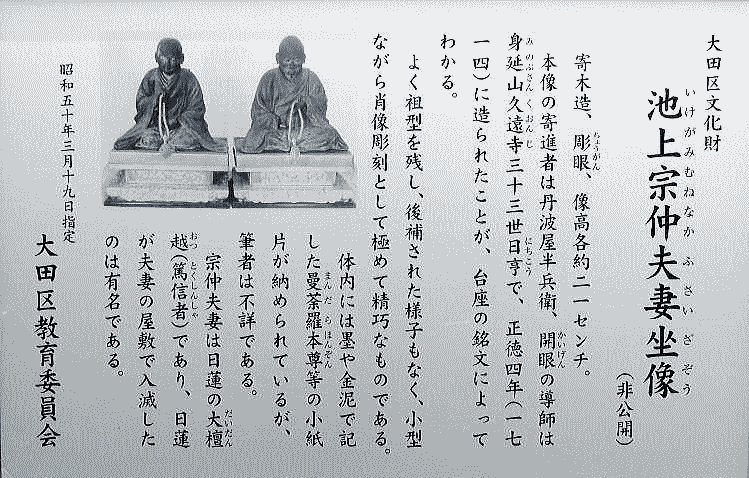 大田区文化財
池上宗仲夫妻坐像
いけがみむねなか ふさいざぞう
(非公開)
寄木造、彫眼、像高各約二一センチ。
ちょうがん
本像の寄進者は丹波屋半兵衛、開眼の導師は
かいげん
身延山久遠寺三十三世日亨で、正徳四年(一七
みのぶさんくおんじ にちこう
一四)に造られたことが、台座の銘文によって
わかる。
よく祖型を残し、後補された様子もなく、小型
ながら肖像彫刻として極めて精巧なものである。
体内には墨や金泥で記
した曼荼羅本尊等の小紙
まんだらほんぞん
片が納められているが、
筆者は不詳である。
宗仲夫妻は日蓮の大檀
だいだん
越(篤信者)であり、日蓮
おつ とくしんしゃ
が夫妻の屋敷で入滅した
のは有名である。
昭和五十年三月十九日指定
大田区教育委員会